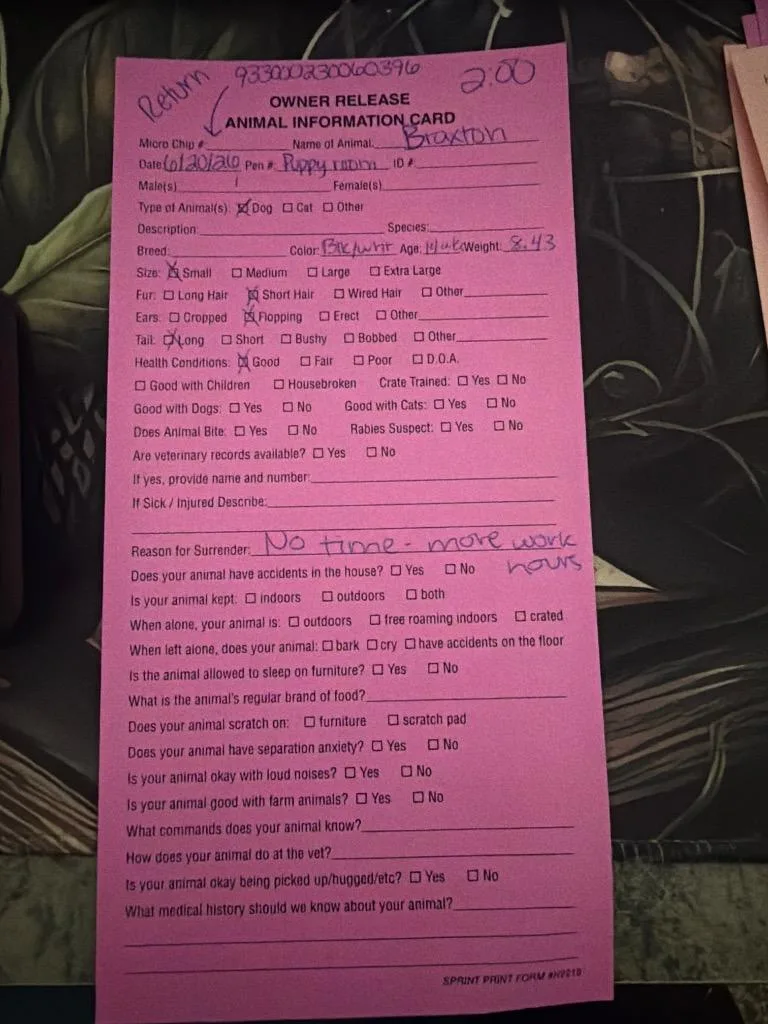 Return 933000230060396 2:00
OWNER RELEASE
ANIMAL INFORMATION CARD
Micro Chip #: Name of Animal: Braxton
Date 6/20/26 Pen #: Puppy room ID #:
Male(s) 1 Female(s)
Type of Animal(s): ☒ Dog ☐ Cat ☐ Other
Description: Species:
Breed: Color: Blk/wht Age: 14wk Weight: 8.43
Size: ☒ Small ☐ Medium ☐ Large ☐ Extra Large
Fur: ☐ Long Hair ☒ Short Hair ☐ Wired Hair ☐ Other
Ears: ☐ Cropped ☒ Flopping ☐ Erect ☐ Other
Tail: ☒ Long ☐ Short ☐ Bushy ☐ Bobbed ☐ Other
Health Conditions: ☒ Good ☐ Fair ☐ Poor ☐ D.O.A.
☐ Good with Children ☐ Housebroken Crate Trained: ☐ Yes ☐ No
Good with Dogs: ☐ Yes ☐ No Good with Cats: ☐ Yes ☐ No
Does Animal Bite: ☐ Yes ☐ No Rabies Suspect: ☐ Yes ☐ No
Are veterinary records available? ☐ Yes ☐ No
If yes, provide name and number:
If Sick / Injured Describe:
Reason for Surrender: No time - more work
hours
Does your animal have accidents in the house? ☐ Yes ☐ No
Is your animal kept: ☐ indoors ☐ outdoors ☐ both
When alone, your animal is: ☐ outdoors ☐ free roaming indoors ☐ crated
When left alone, does your animal: ☐ bark ☐ cry ☐ have accidents on the floor
Is the animal allowed to sleep on furniture? ☐ Yes ☐ No
What is the animal's regular brand of food?
Does your animal scratch on: ☐ furniture ☐ scratch pad
Does your animal have separation anxiety? ☐ Yes ☐ No
Is your animal okay with loud noises? ☐ Yes ☐ No
Is your animal good with farm animals? ☐ Yes ☐ No
What commands does your animal know?
How does your animal do at the vet?
Is your animal okay being picked up/hugged/etc? ☐ Yes ☐ No
What medical history should we know about your animal?
SPRINT PRINT FORM